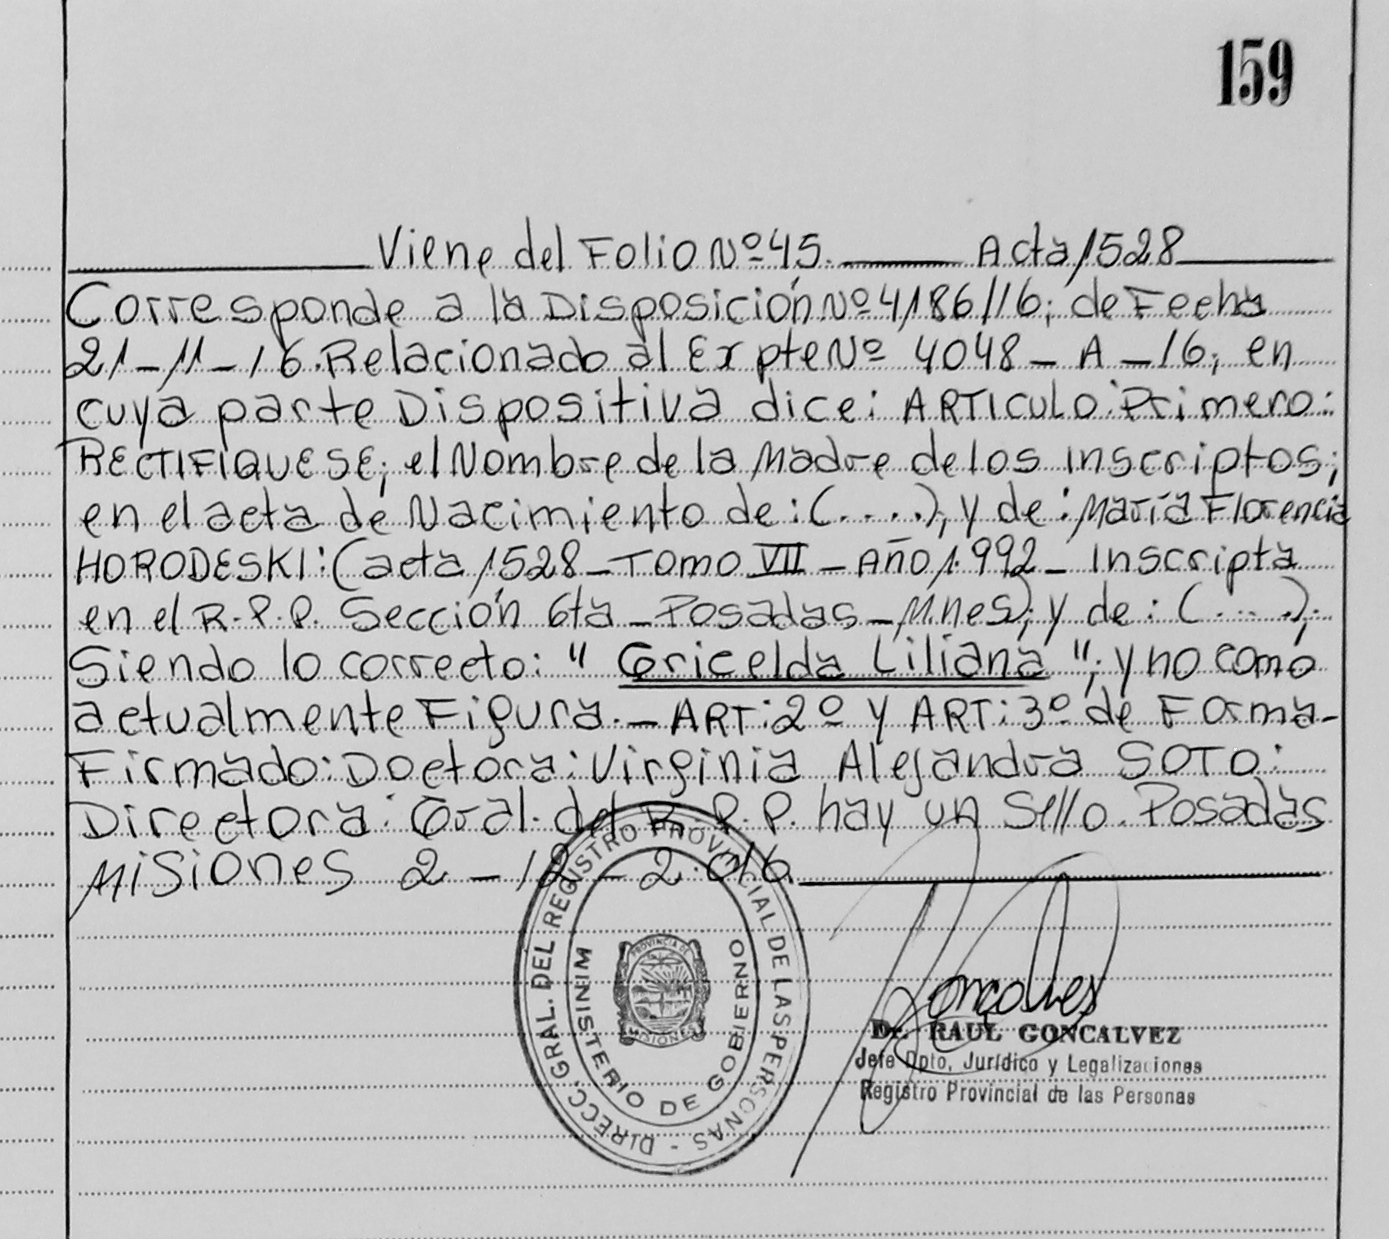 159
Viene del Folio Nº 45. Acta 1528
Corresponde a la Disposición Nº 4186/16; de Fecha
21-11-16. Relacionado al Expte Nº 4048-A-16; en
cuya parte Dispositiva dice: ARTICULO Primero:
RECTIFIQUESE; el Nombre de la Madre de los inscriptos;
en el acta de Nacimiento de: (....), y de: María Florencia
HORODESKI: (acta 1528-Tomo VII-Año 1.992-Inscripta
en el R.P.P. Sección 6ta-Posadas-Mnes); y de: (....);
Siendo lo correcto: "Gricelda Liliana"; y no como
actualmente Figura.- ART: 2º y ART: 3º de Forma-
Firmado: Doctora: Virginia Alejandra SOTO:
Directora: Gral. del R.P.P. hay un Sello. Posadas
Misiones 2-12-2.016.
DIRECC. GRAL. DEL REGISTRO PROVINCIAL DE LAS PERSONAS -
MINISTERIO DE GOBIERNO
PROVINCIA DE
MISIONES
Goncalves
Dr. RAUL GONCALVEZ
Jefe Dpto. Jurídico y Legalizaciones
Registro Provincial de las Personas